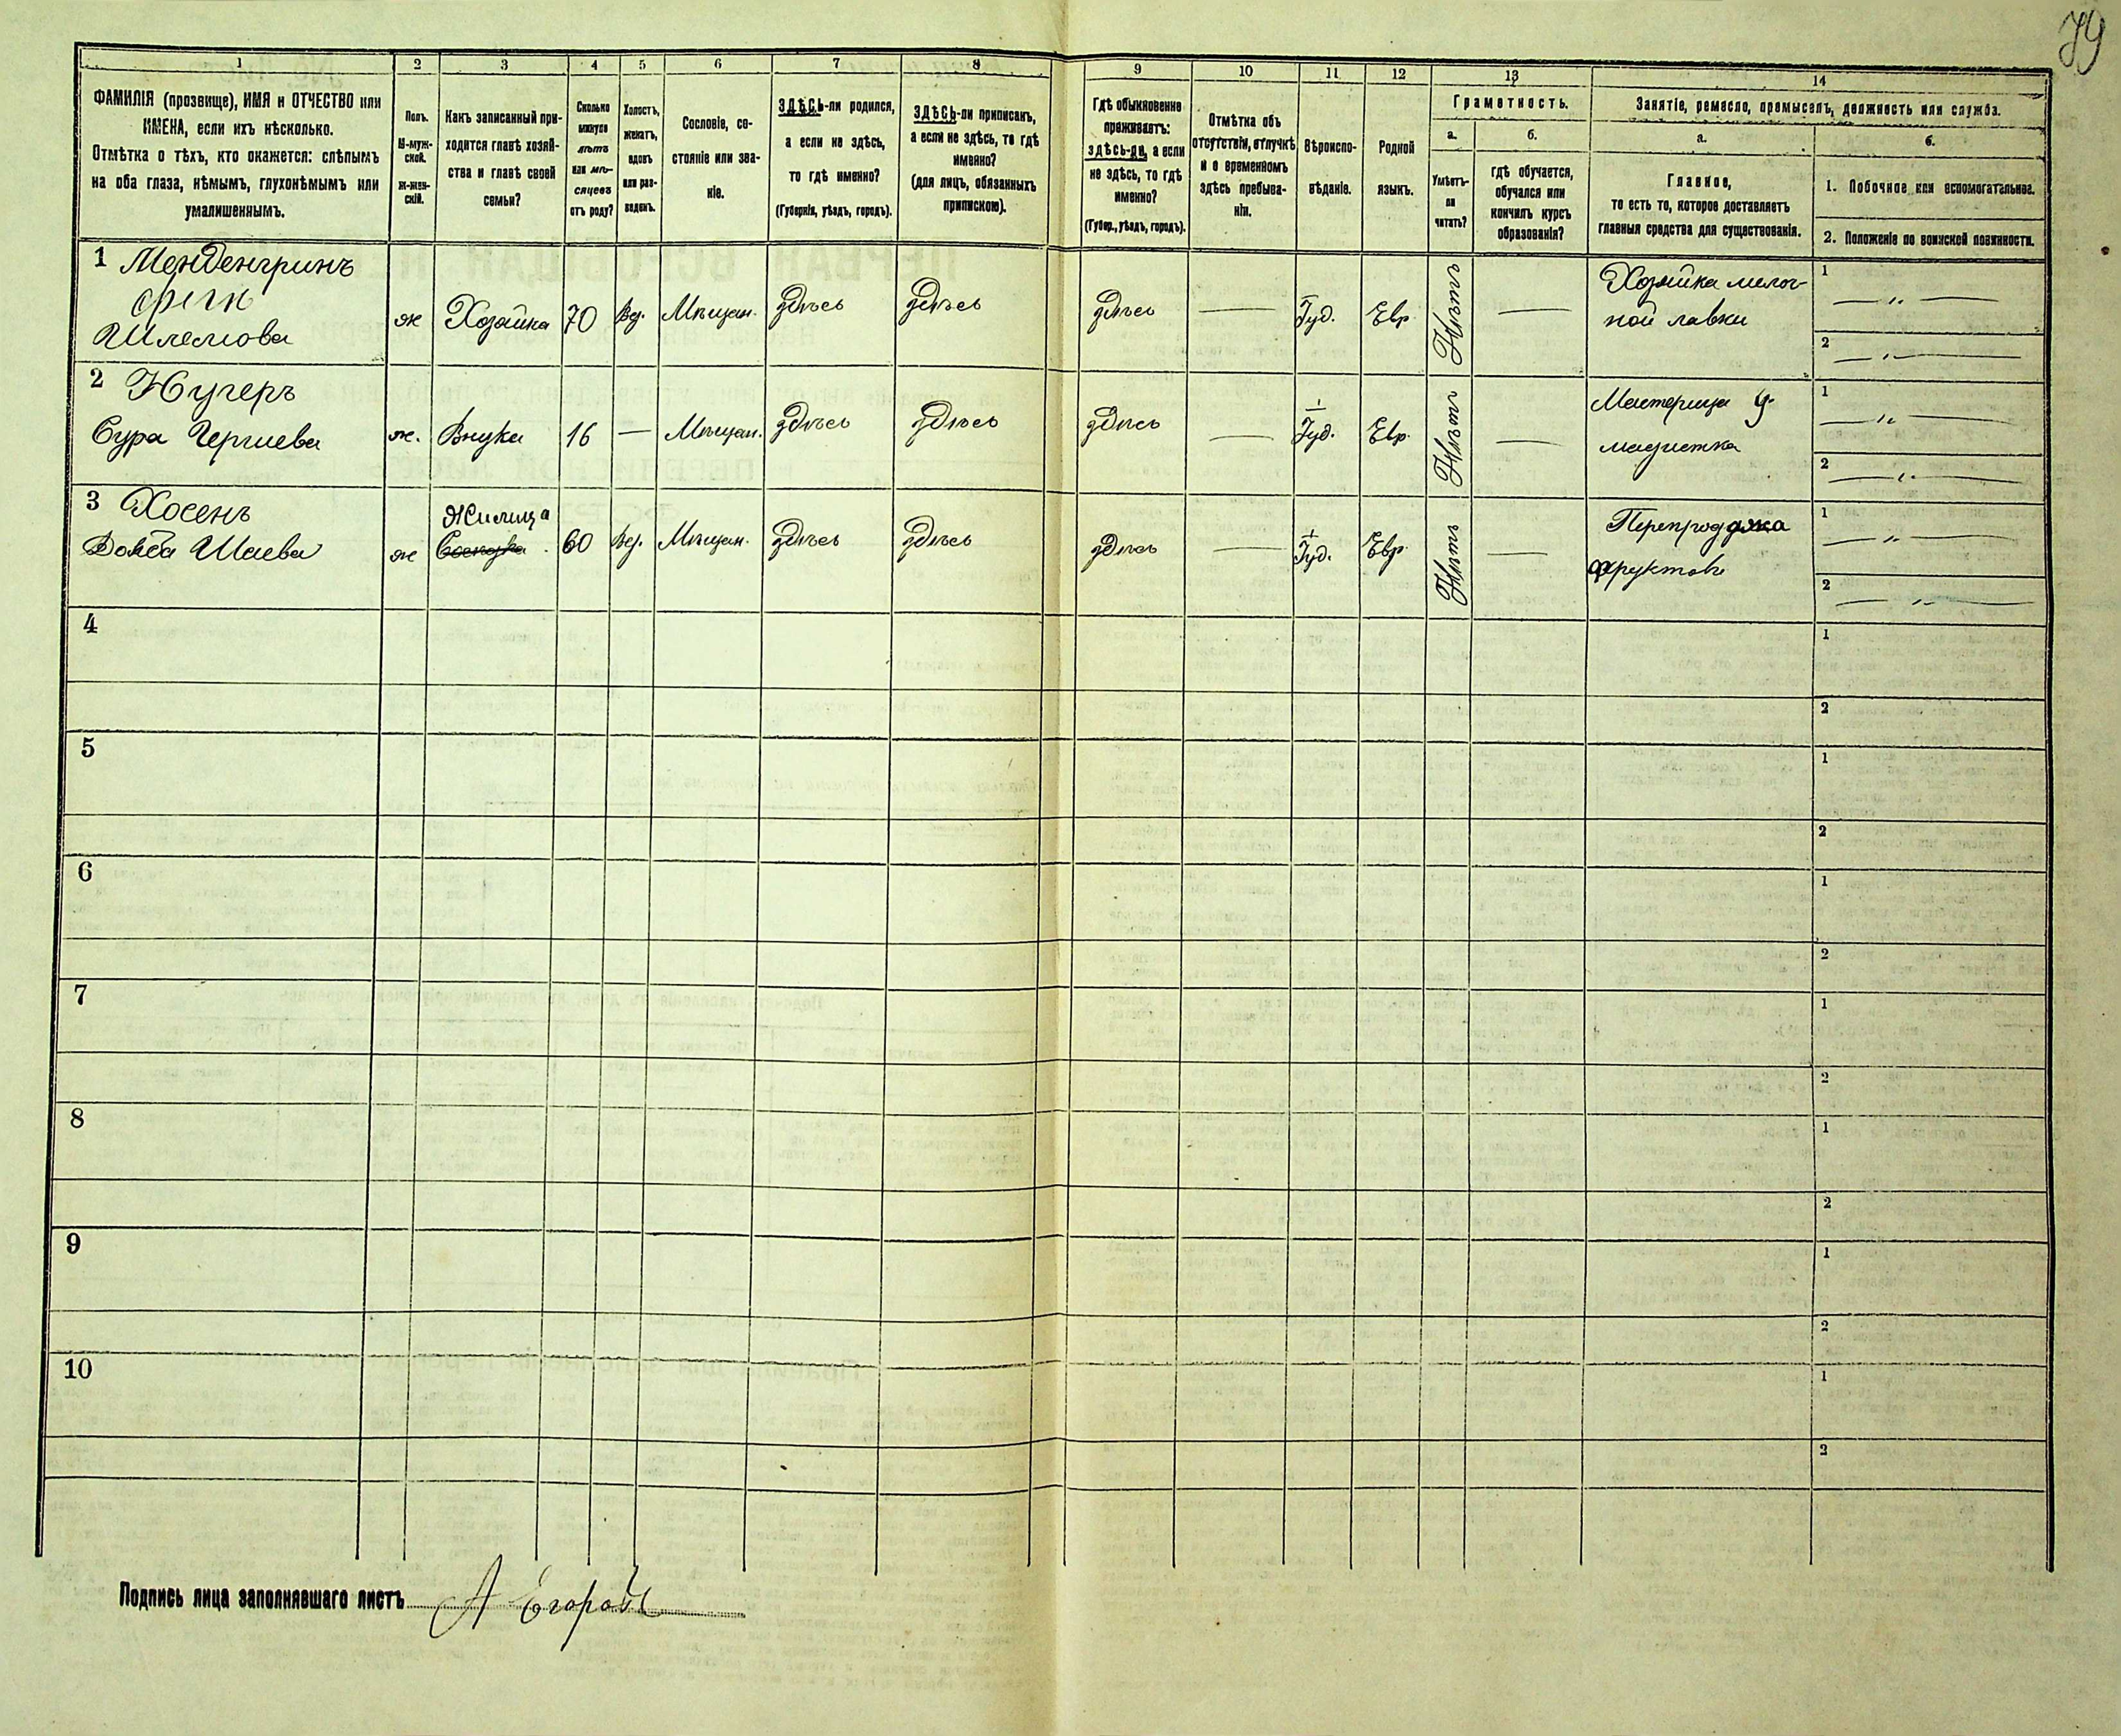 79
1
2
3
4
5
6
7
8
9
10
11
12
13
14
ФАМИЛІЯ (прозвище), ИМЯ и ОТЧЕСТВО или
ИМЕНА, если ихъ нѣсколько.
Отмѣтка о тѣхъ, кто окажется: слѣпымъ
на оба глаза, нѣмымъ, глухонѣмымъ или
умалишеннымъ.
Полъ.
М-муж-
ской.
Ж-жен-
скій.
Какъ записанный при-
ходится главѣ хозяй-
ства и главѣ своей
семьи?
Сколько
минуло
лѣтъ
или мѣ-
сяцевъ
отъ роду?
Холостъ,
женатъ,
вдовъ
или раз-
веденъ.
Сословіе, со-
стояніе или зва-
ніе.
ЗДѢСЬ-ли родился,
а если не здѣсь,
то гдѣ именно?
(Губернія, уѣздъ, городъ).
ЗДѢСЬ-ли приписанъ,
а если не здѣсь, то гдѣ
именно?
(для лицъ, обязанныхъ
припискою).
Гдѣ обыкновенно
проживаетъ:
здѣсь-ли, а если
не здѣсь, то гдѣ
именно?
(Губер., уѣздъ, городъ).
Отмѣтка объ
отсутствіи, отлучкѣ
и о временномъ
здѣсь пребыва-
ніи.
Вѣроиспо-
вѣданіе.
Родной
языкъ.
Грамотность.
а.
Умѣетъ-
ли
читать?
б.
гдѣ обучается,
обучался или
кончилъ курсъ
образованія?
Занятіе, ремесло, промыселъ, должность или служба.
а.
Главное,
то есть то, которое доставляетъ
главныя средства для существованія.
б.
1. Побочное или вспомогательное.
2. Положеніе по воинской повинности.
1 Менденгринъ
Шлемова
ж
Хозяйка
70
Вд.
Мѣщан.
здѣсь
здѣсь
здѣсь
Іуд.
Евр.
Нѣтъ
Хозяйка мелоч-
ной лавки
1 — " —
2 — " —
2
Сура
ж.
Внука
16
—
Мѣщан.
здѣсь
здѣсь
здѣсь
—
Іуд.
Евр.
Нѣтъ
—
Мастерица
модистка
1 — " —
2 — " —
3 Хосенъ
Шаева
ж
Жилица
60
Вд.
Мѣщан.
здѣсь
здѣсь
здѣсь
—
Іуд.
Евр.
Нѣтъ
—
фруктовъ
1 — " —
2 — " —
4
1
2
5
1
2
6
1
2
7
1
2
8
1
2
9
1
2
10
1
2
Подпись лица заполнявшаго листъ А Егоровъ